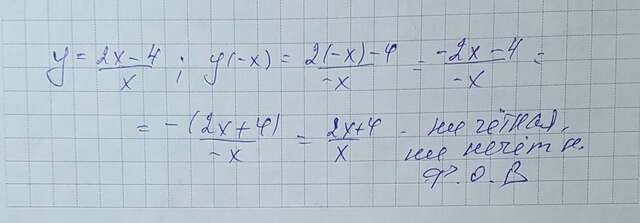 y = (2x-4)/x ; y(-x) = (2(-x)-4)/(-x) = (-2x-4)/(-x) =
= (-(2x+4))/(-x) = (2x+4)/x - ни чётная,
ни нечётн.
Ф.О.В